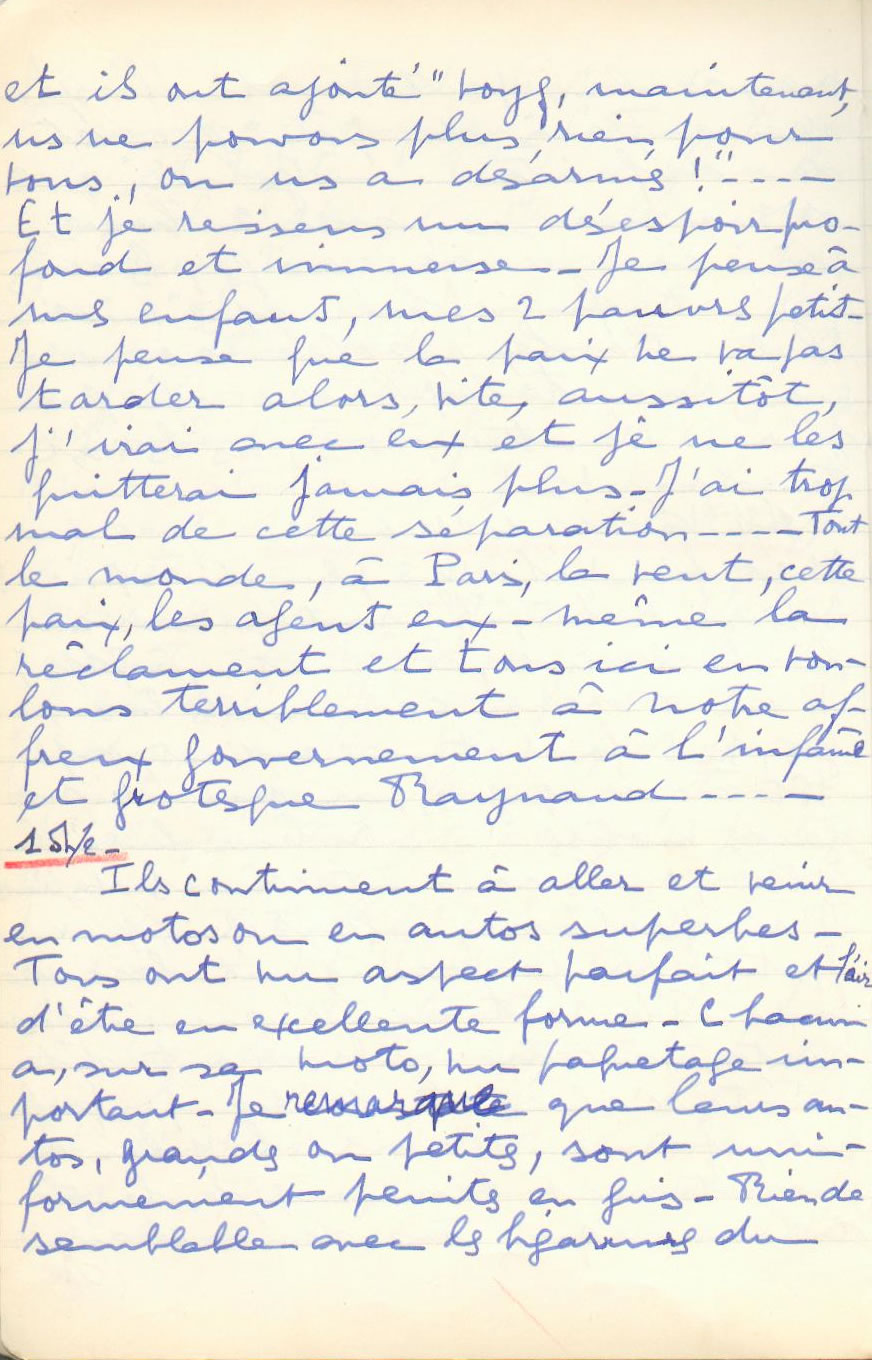 et ils ont ajouté "voyez, maintenant,
ns ne pouvons plus rien pour
vous, on ns a désarmés !" ----
Et je ressens un désespoir pro-
fond et immense - Je pense à
mes enfants, mes 2 pauvres petits -
Je pense que la paix ne va pas
tarder alors, vite, aussitôt,
j'irai avec eux et je ne les
quitterai jamais plus - J'ai trop
mal de cette séparation ---- Tout
le monde, à Paris, la veut, cette
paix, les agents eux-même la
réclament et tous ici en vou-
lons terriblement à notre af-
freux gouvernement à l'infâme
et grotesque Raynaud ----
15h/2 -
Ils continuent à aller et venir
en motos ou en autos superbes -
Tous ont un aspect parfait et l'air
d'être en excellente forme - Chacun
a, sur sa moto, un paquetage im-
portant - Je remarque que leurs au-
tos, grandes ou petites, sont uni-
formément peints en gris - Rien de
semblable avec les bigarrures du